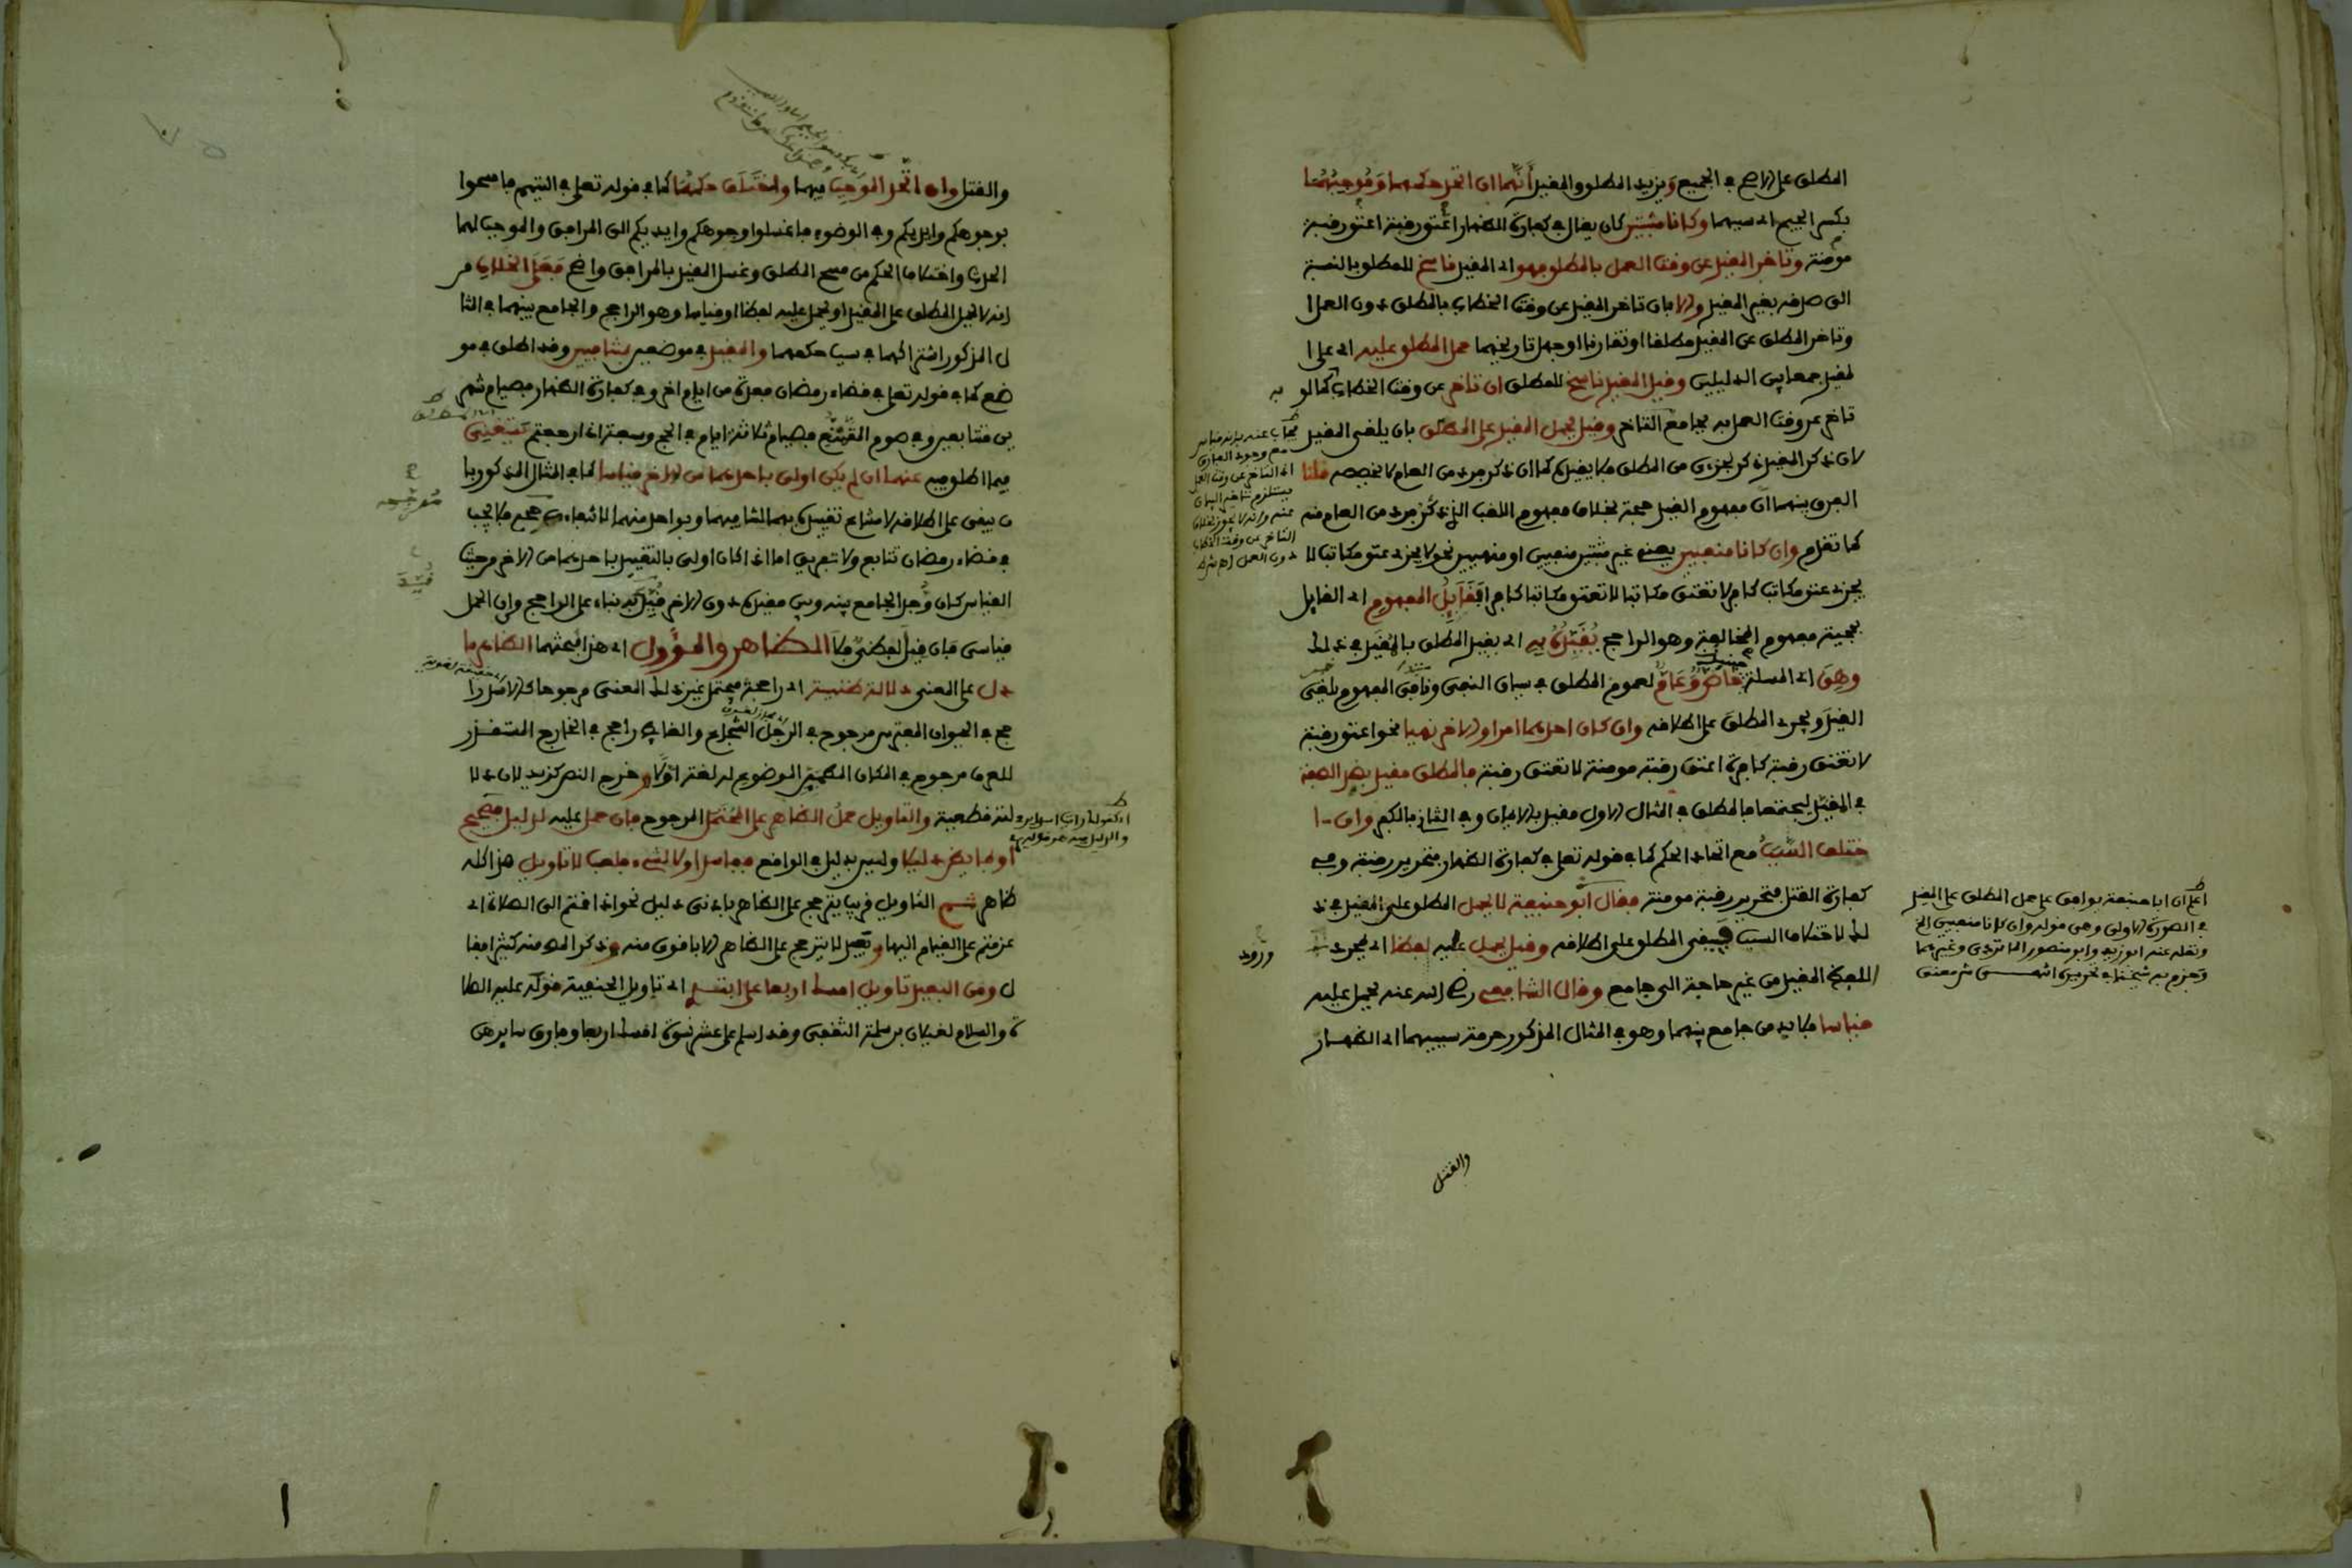 المطلق على الاصح في الجميع ويزيد المطلق والمقيد أنهما ان اتحد حكمهما وموجبهما
بكسر الجيم اي سببهما وكانا مثبتين كان يقال في كفارة الظهار اعتق رقبة اعتق رقبة
مومنة وتاخر المقيد عن وقت العمل بالمطلق فهو اي المقيد ناسخ للمطلق بالنسبة
الى صدقه بغير المقيد والا بان تاخر المقيد عن وقت الخطاب بالمطلق دون العمل ا
وتاخر المطلق عن المقيد مطلقا او تقارنا او جهل تاريخهما حمل المطلق عليه اي على ا
لمقيد جمعا بين الدليلين وقيل المقيد ناسخ للمطلق ان تاخر عن وقت الخطاب به كما لو
تاخر عن وقت العمل به بجامع التاخر وقيل يحمل المقيد على المطلق بان يلغى المقيد
لان ذكر المقيد ذكر لجزءي من المطلق فلا يقيده كما ان ذكر فرد من العام لا يخصصه قلنا
الفرق بينهما ان مفهوم القيد حجة بخلاف مفهوم اللقب الذي ذكر فرد من العام منه
كما تقدم وان كانا منفيين يعني غير مثبتين منفيين او منهيين نحو لا يجزي عتق مكاتب لا
يجزي عتق مكاتب كافر لا تعتق مكاتبا لا تعتق مكاتبا كافرا فقايل المفهوم اي القايل
بحجية مفهوم المخالفة وهو الراجح يقيده به اي يقيد المطلق بالمقيد في ذلك
وهي اي المسئلة حينئذ خاص وعام لعموم المطلق في سياق النفي ونافي المفهوم يلغي
القيد ويجري المطلق على اطلاقه وان كان احدهما امرا والاخر نهيا نحو اعتق رقبة
لا تعتق رقبة كافرة اعتق رقبة مومنة لا تعتق رقبة فالمطلق مقيد بضد الصفة
في المقيد ليجتمعا فالمطلق في المثال الاول مقيد بالايمان وفي الثاني بالكفر وان ا
ختلف السبب مع اتحاد الحكم كما في قوله تعلى في كفارة الظهار فتحرير رقبة وفي
كفارة القتل فتحرير رقبة مومنة فقال أبو حنيفة لا يحمل المطلق على المقيد في ذ
لك لاختلاف السبب فيبقى المطلق على اطلاقه وقيل يحمل عليه لفظا اي بمجرد
ورود
اللفظ المقيد من غير حاجة الى جامع وقال الشافعي رضي الله عنه يحمل عليه
قياسا فلا بد من جامع بينهما وهو في المثال المذكور حرمة سببيهما اي الظهار
والقتل
اعلم ان ابا حنيفة يوافق على حمل المطلق على المقيد
في الصورة الاولى وهي قوله وان كانا منفيين الخ
ونقله عنه ابو زيد وابو منصور الماتريدي وغيرهما
وجزم به شيخنا في تحريره
والقتل وان اتحد الموجب فيهما واختلف حكمهما كما في قوله تعلى في التيمم فامسحوا
بوجوهكم وايديكم وفي الوضوء فاغسلوا وجوهكم وايديكم الى المرافق والموجب لهما
الحدث واختلاف الحكم من مسح المطلق وغسل المقيد بالمرافق واضح فعلى الخلاف من
انه لا يحمل المطلق على المقيد او يحمل عليه لفظا او قياسا وهو الراجح والجامع بينهما في المثا
ل المذكور اشتراكهما في سبب حكمهما والمقيد في موضعين بمتنافيين وقد اطلق في مو
ضع كما في قوله تعلى في قضاء رمضان فعدة من ايام اخر وفي كفارة الظهار فصيام شهر
ين متتابعين وفي صوم التمتع فصيام ثلاثة ايام في الحج وسبعة اذا رجعتم يستغني
فيما اطلق فيه عنهما ان لم يكن اولى باحدهما من الاخر قياسا كما في المثال المذكور با
ن يبقى على اطلاقه لامتناع تقييده بهما لتنافيهما وبواحد منهما لانتفاء مرجحه فلا يجب
في قضاء رمضان تتابع ولا تفريق اما اذا كان اولى بالتقييد باحدهما من الاخر من حيث
القياس كان وجد الجامع بينه وبين مقيده دون الاخر قيد به بناء على الراجح وان الحمل
قياسي فان قيل لفظي فلا الظاهر والمؤول اي هذا مبحثهما الظاهر ما
دل على المعنى دلالة ظنية اي راجحة فيحتمل غير ذلك المعنى مرجوحا كالاسد را
جح في الحيوان المفترس مرجوح في الرجل الشجاع والغايط راجح في الخارج المستقذر
للعرف مرجوح في المكان المطمئن الموضوع له لغة اولا وخرج النص كزيد لان دلا
لته قطعية والتاويل حمل الظاهر على المحتمل المرجوح فان حمل عليه لدليل فصحيح
أو لما يظن دليلا وليس بدليل في الواقع ففاسد او لا لشيء فلعب لا تاويل هذا كله
ظاهر ثم التاويل قريب يترجح على الظاهر بادنى دليل نحو اذا قمتم الى الصلاة اي
عزمتم على القيام اليها وبعيد لا يترجح على الظاهر الا باقوى منه وذكر المص منه كثيرا فقا
ل ومن البعيد تاويل امسك اربعا على ابتدئ اي تاويل الحنفية قوله عليه الصلا
ة والسلام لغيلان بن سلمة الثقفي وقد اسلم على عشر نسوة امسك اربعا وفارق سايرهن